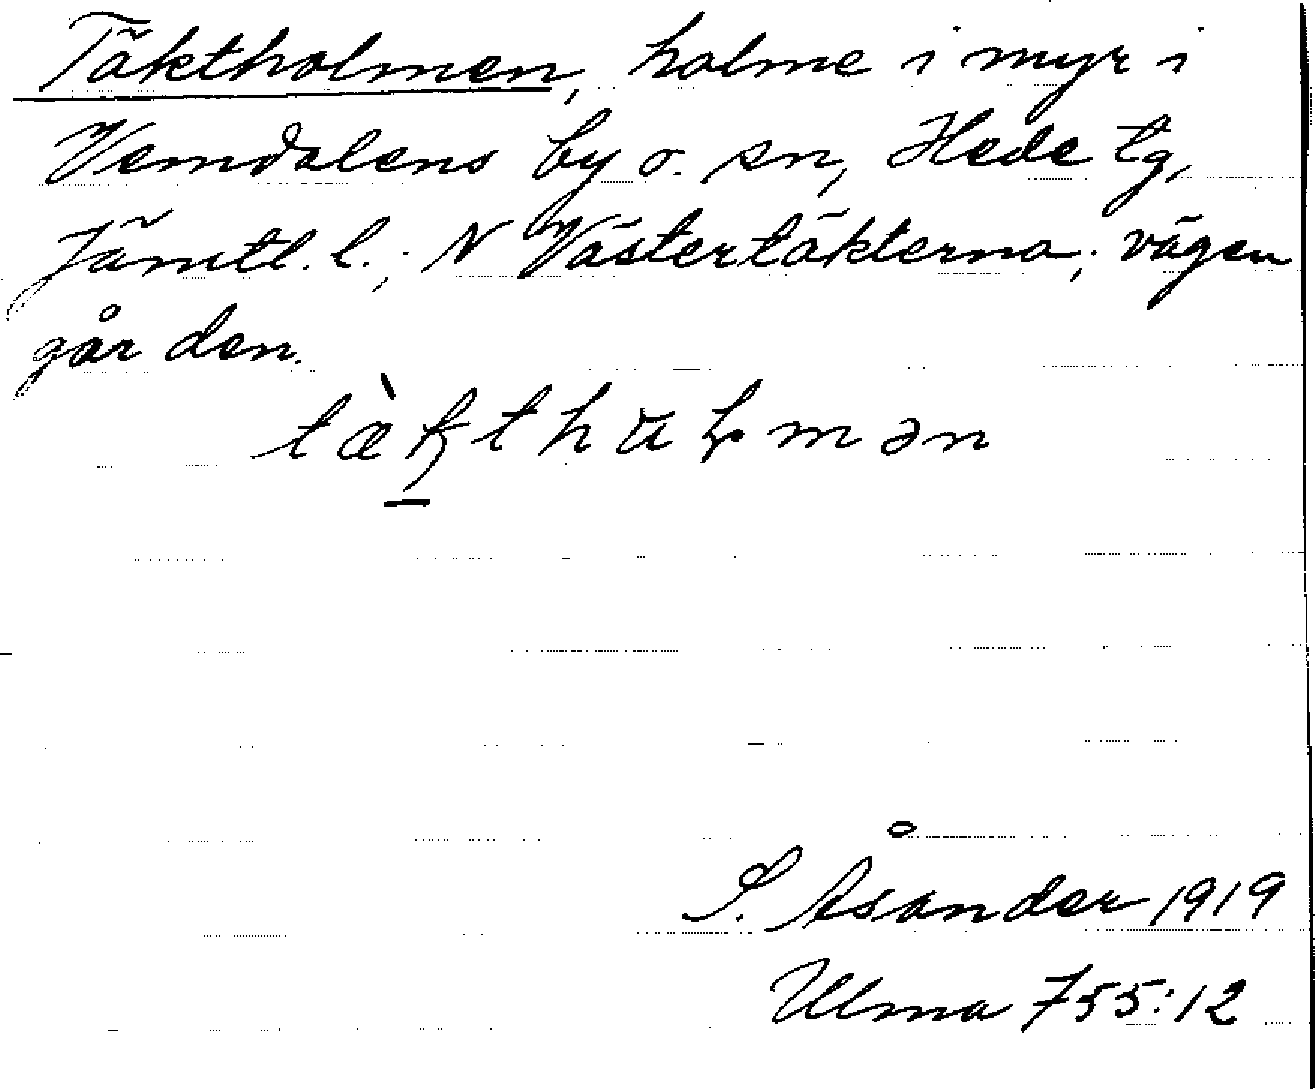 Täktholmen, holme i myr i
Vemdalens by o. sn, Hede tg,
Jämtl. l.; N Västertäkterna; vägen
går den.
S. Åsander 1919
Ulma 755:12